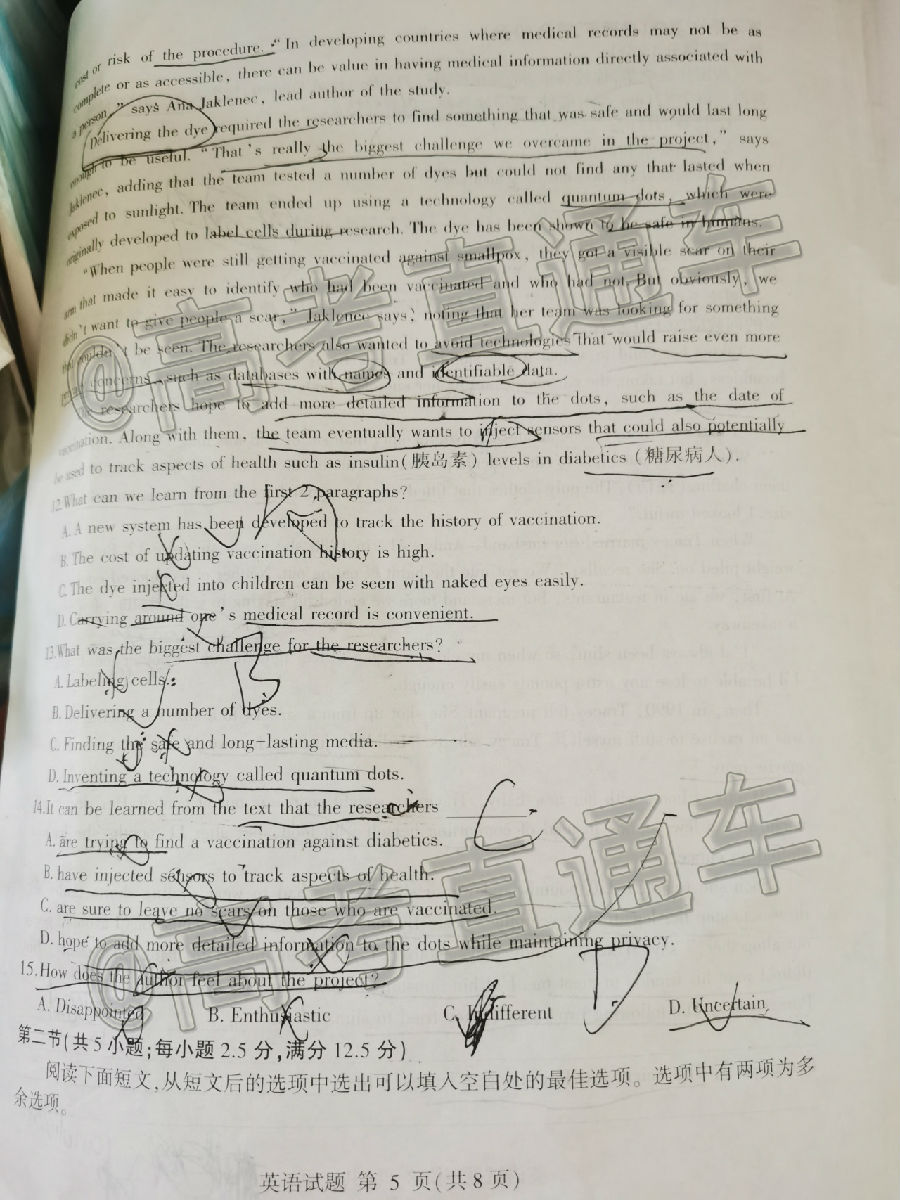 cost or risk of the procedure. "In developing countries where medical records may not be as
complete or as accessible, there can be value in having medical information directly associated with
a person," says Ana Jaklenec, lead author of the study.
Delivering the dye required the researchers to find something that was safe and would last long
enough to be useful. "That's really the biggest challenge we overcame in the project," says
Jaklenec, adding that the team tested a number of dyes but could not find any that lasted when
exposed to sunlight. The team ended up using a technology called quantum dots, which were
originally developed to label cells during research. The dye has been shown to be safe in humans.
"When people were still getting vaccinated against smallpox, they got a visible scar on their
arm that made it easy to identify who had been vaccinated and who had not. But obviously, we
didn't want to give people a scar," Jaklenec says, noting that her team was looking for something
that couldn't be seen. The researchers also wanted to avoid technologies that would raise even more
concerns, such as databases with names and identifiable data.
researchers hope to add more detailed information to the dots, such as the date of
vaccination. Along with them, the team eventually wants to inject sensors that could also potentially
be used to track aspects of health such as insulin(胰岛素) levels in diabetics (糖尿病人).
12.What can we learn from the first 2 paragraphs?
A
A. A new system has been developed to track the history of vaccination.
B. The cost of updating vaccination history is high.
C. The dye injected into children can be seen with naked eyes easily.
D. Carrying around one's medical record is convenient.
13.What was the biggest challenge for the researchers?
B
A. Labeling cells.
B. Delivering a number of dyes.
C. Finding the safe and long-lasting media.
D. Inventing a technology called quantum dots.
14.It can be learned from the text that the researchers
C
A. are trying to find a vaccination against diabetics.
B. have injected sensors to track aspects of health.
C. are sure to leave no scars on those who are vaccinated.
D. hope to add more detailed information to the dots while maintaining privacy.
15.How does the author feel about the project?
D
A. Disappointed B. Enthusiastic C. Indifferent D. Uncertain
第二节(共5小题;每小题2.5分,满分12.5分)
阅读下面短文,从短文后的选项中选出可以填入空白处的最佳选项。选项中有两项为多
余选项。
英语试题 第 5 页(共8页)
@高考直通车
@高考直通车